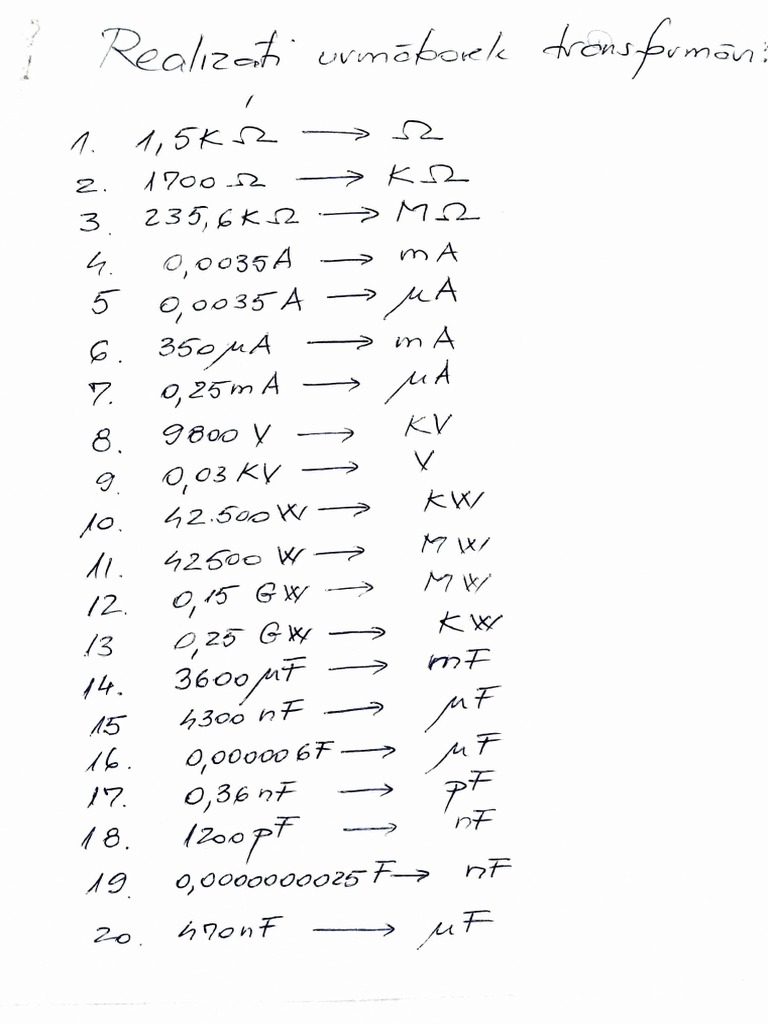 Realizați următoarele transformări:
1. 1,5KΩ → Ω
2. 1700Ω → KΩ
3. 235,6KΩ → MΩ
4. 0,0035A → mA
5 0,0035A → μA
6. 350μA → mA
7. 0,25mA → μA
8. 9800 V → KV
9. 0,03 KV → V
10. 42.500W → KW
11. 42500 W → MW
12. 0,15 GW → MW
13 0,25 GW → KW
14. 3600μF → mF
15 4300 nF → μF
16. 0,000006F → μF
17. 0,36nF → pF
18. 1200pF → nF
19. 0,0000000025F → nF
20. 470nF → μF